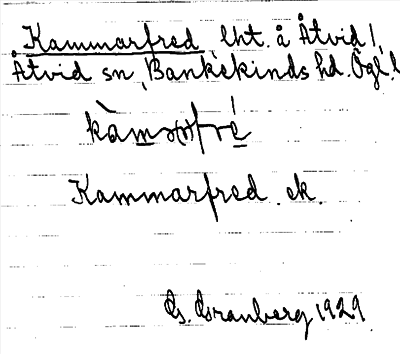 Kammarfred, lht. å Åtvid 1,
Åtvid sn, Bankekinds hd. Ögl. l
Kammarfred. ek.
G. Granberg 1929